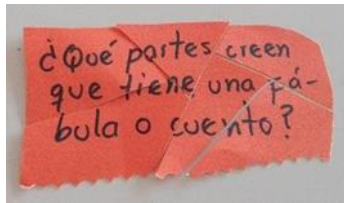 ¿Qué partes creen
que tiene una fá-
bula o cuento?